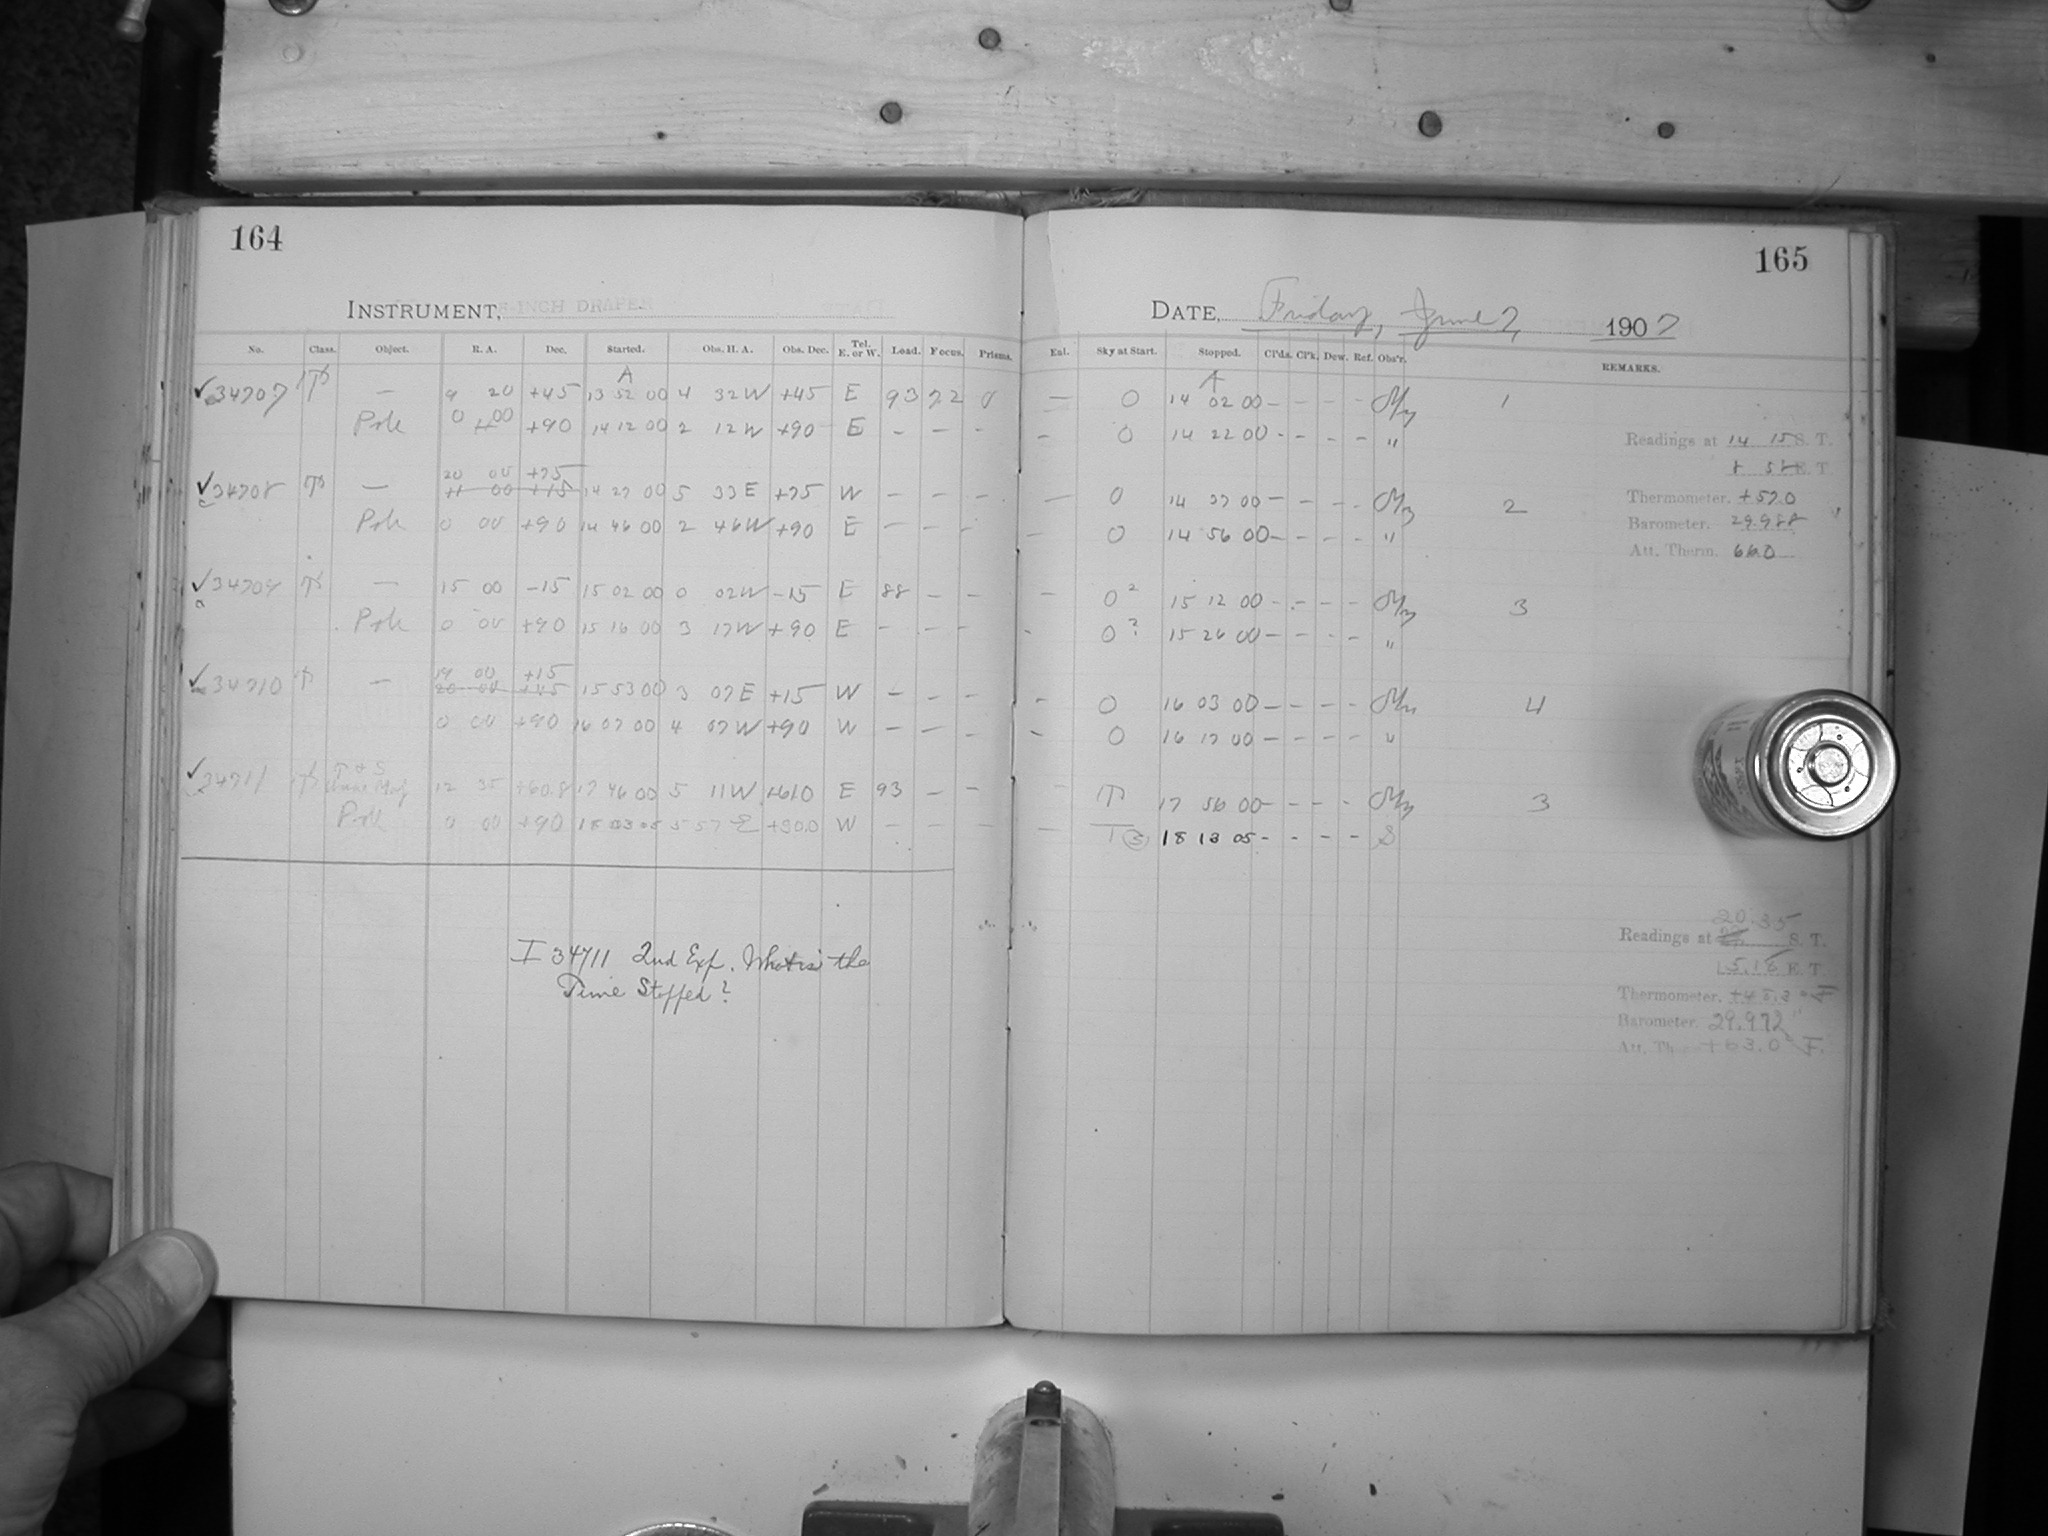 164
INSTRUMENT, 8-INCH DRAPER
No. Class. Object. R. A. Dec. Started. Obs. H. A. Obs. Dec. Tel. E. or W. Load. Focus. Prisms.
A
✓34707 — 9 20 +45 13 52 00 4 32 W +45 E 93 72 0
Pole 0 00 +90 14 12 00 2 12 W +90 E — — -
20 00 +75
✓34708 — 11 00 +15 14 27 00 5 33 E +75 W — — —
Pole 0 00 +90 14 46 00 2 46 W +90 E — — —
✓34709 — 15 00 -15 15 02 00 0 02 W -15 E 88 — —
Pole 0 00 +90 15 16 00 3 17 W +90 E — — —
19 00 +15
✓34710 — 20 00 +45 15 53 00 3 07 E +15 W — — —
0 00 +90 16 07 00 4 07 W +90 W — — —
✓34711 12 35 +60.8 17 46 00 5 11 W +61.0 E 93 — —
Pole 0 00 +90 18 03 05 5 57 E +90.0 W — — —
I 34711 2nd Exp. What is the
Time Stopped?
165
DATE, Friday, June 7, 1907
Eal. Sky at Start. Stopped. Cl'ds. Cl'k. Dew. Ref. Obs'r. REMARKS.
A
— 0 14 02 00 - - - - 1
- 0 14 22 00 - - - - "
Readings at 14 15 S. T.
8 58 E. T.
— 0 14 37 00 — - - - 2
Thermometer. +57.0
— 0 14 56 00 — - - - "
Barometer. 29.988
Att. Therm. 66.0
— 0² 15 12 00 - - - - 3
- 0² 15 26 00 — - - - "
- 0 16 03 00 — - - - 4
- 0 16 17 00 — - - - "
- 17 56 00 - - - - 3
— 18 13 05 - - - - S
20.35
Readings at S. T.
15.18 E. T.
Thermometer. °F
Barometer. 29.972"
Att. Th +63.0° F.